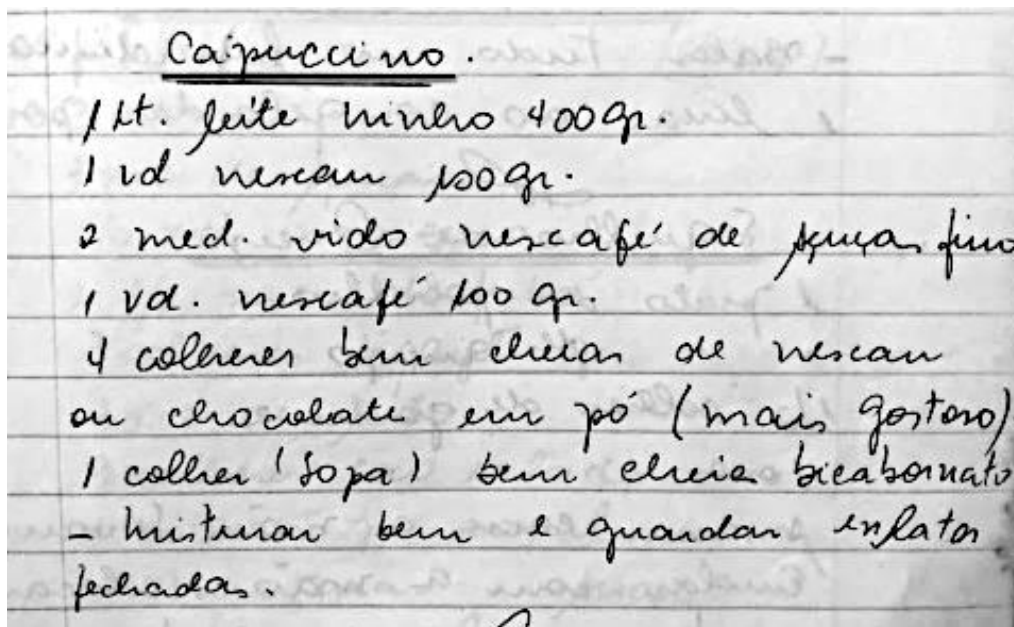 Capuccino.
1 lt. leite ninho 400 gr.
1 vd nescau 100 gr.
2 med. vido nescafé de açuçar fino
1 vd. nescafé 100 gr.
4 colheres bem cheias de nescau
ou chocolate em pó (mais gostoso)
1 colher (sopa) bem cheia bicabornato
- misturar bem e guardar latas
fechadas.